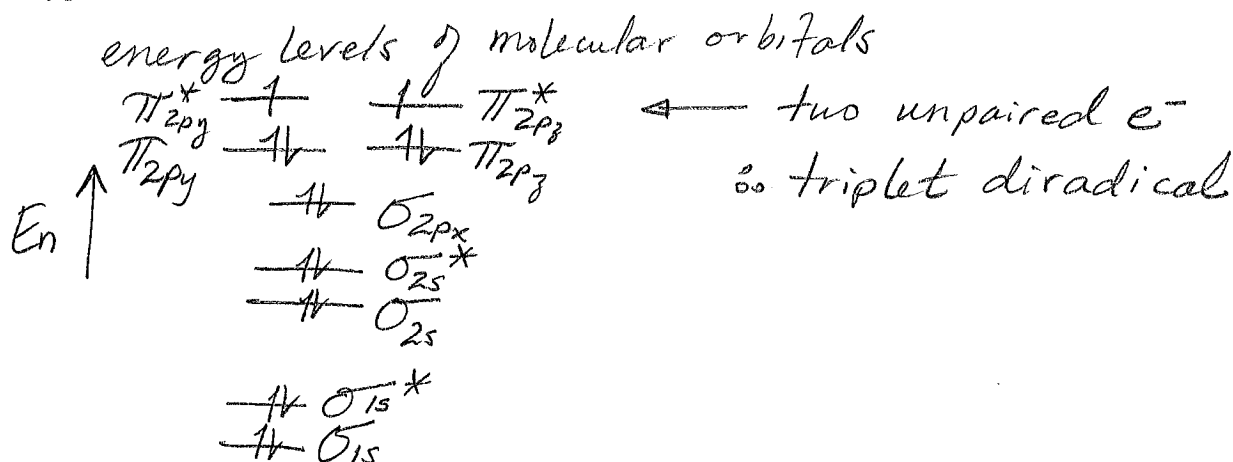 energy levels of molecular orbitals
π*2py ↑ ↑ π*2pz ← two unpaired e⁻
π2py ↑↓ ↑↓ π2pz ∴ triplet diradical
↑↓ σ2px
En ↑
↑↓ σ2s*
↑↓ σ2s
↑↓ σ1s*
↑↓ σ1s